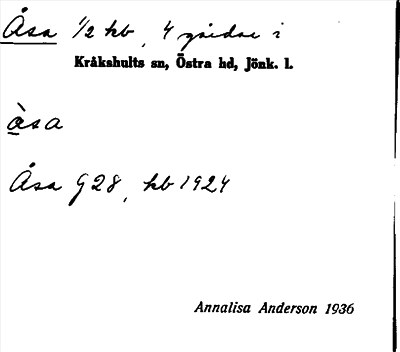 Åsa 1/2 hb, 4 gårdar i
Kråkshults sn, Östra hd, Jönk. l.
òsa
Åsa G28, hb 1924
Annalisa Anderson 1936